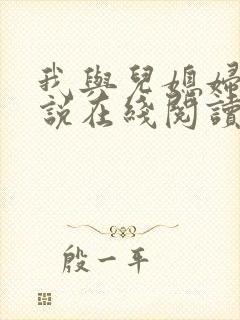 我與兒媳婦
說在綫閱讀
殷一平